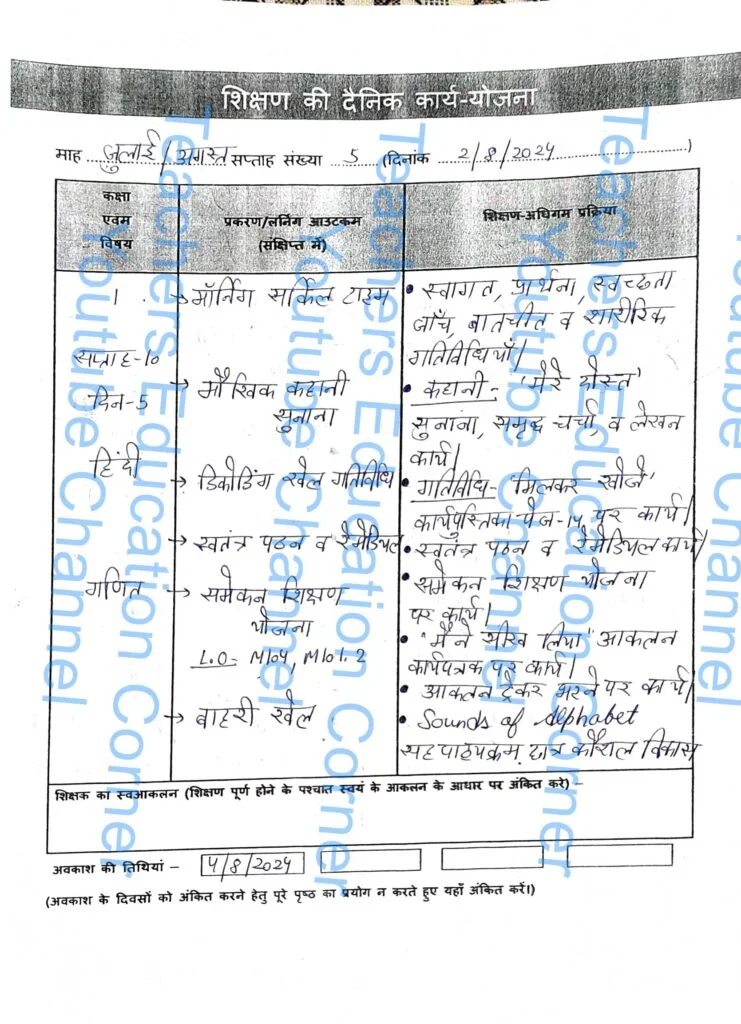 शिक्षण की दैनिक कार्य-योजना
माह जुलाई/अगस्त सप्ताह संख्या 5 (दिनांक 2/8/2024)
कक्षा एवम विषय
प्रकरण/लर्निंग आउटकम (संक्षिप्त में)
शिक्षण-अधिगम प्रक्रिया
1
सप्ताह-10
दिन-5
हिंदी
गणित
→ मॉर्निंग सर्किल टाइम
→ मौखिक कहानी
सुनाना
→ डिकोडिंग खेल गतिविधि
→ स्वतंत्र पठन व रेमेडियल
→ समेकन शिक्षण
योजना
L.O- M104, M101.2
→ बाहरी खेल
• स्वागत, प्रार्थना, स्वच्छता
जाँच, बातचीत व शारीरिक
गतिविधियाँ।
• कहानी- 'मेरे दोस्त'
सुनाना, समृद्ध चर्चा, व लेखन
कार्य।
• गतिविधि- 'मिलकर खोजें'
कार्यपुस्तिका पेज-14 पर कार्य।
• स्वतंत्र पठन व रेमेडियल कार्य।
• समेकन शिक्षण योजना
पर कार्य।
• "मैंने सीख लिया" आकलन
कार्यपत्रक पर कार्य।
• आकलन ट्रैकर भरने पर कार्य।
• Sounds of Alphabet
सहपाठ्यक्रम, छात्र कौशल विकास
शिक्षक का स्वआकलन (शिक्षण पूर्ण होने के पश्चात स्वयं के आकलन के आधार पर अंकित करे) –
अवकाश की तिथियां – 4/8/2024
(अवकाश के दिवसों को अंकित करने हेतु पूरे पृष्ठ का प्रयोग न करते हुए यहाँ अंकित करें।)
Teachers Education Corner
Youtube Channel
Teachers Education Corner
Youtube Channel
Teachers Education Corner
Youtube Channel